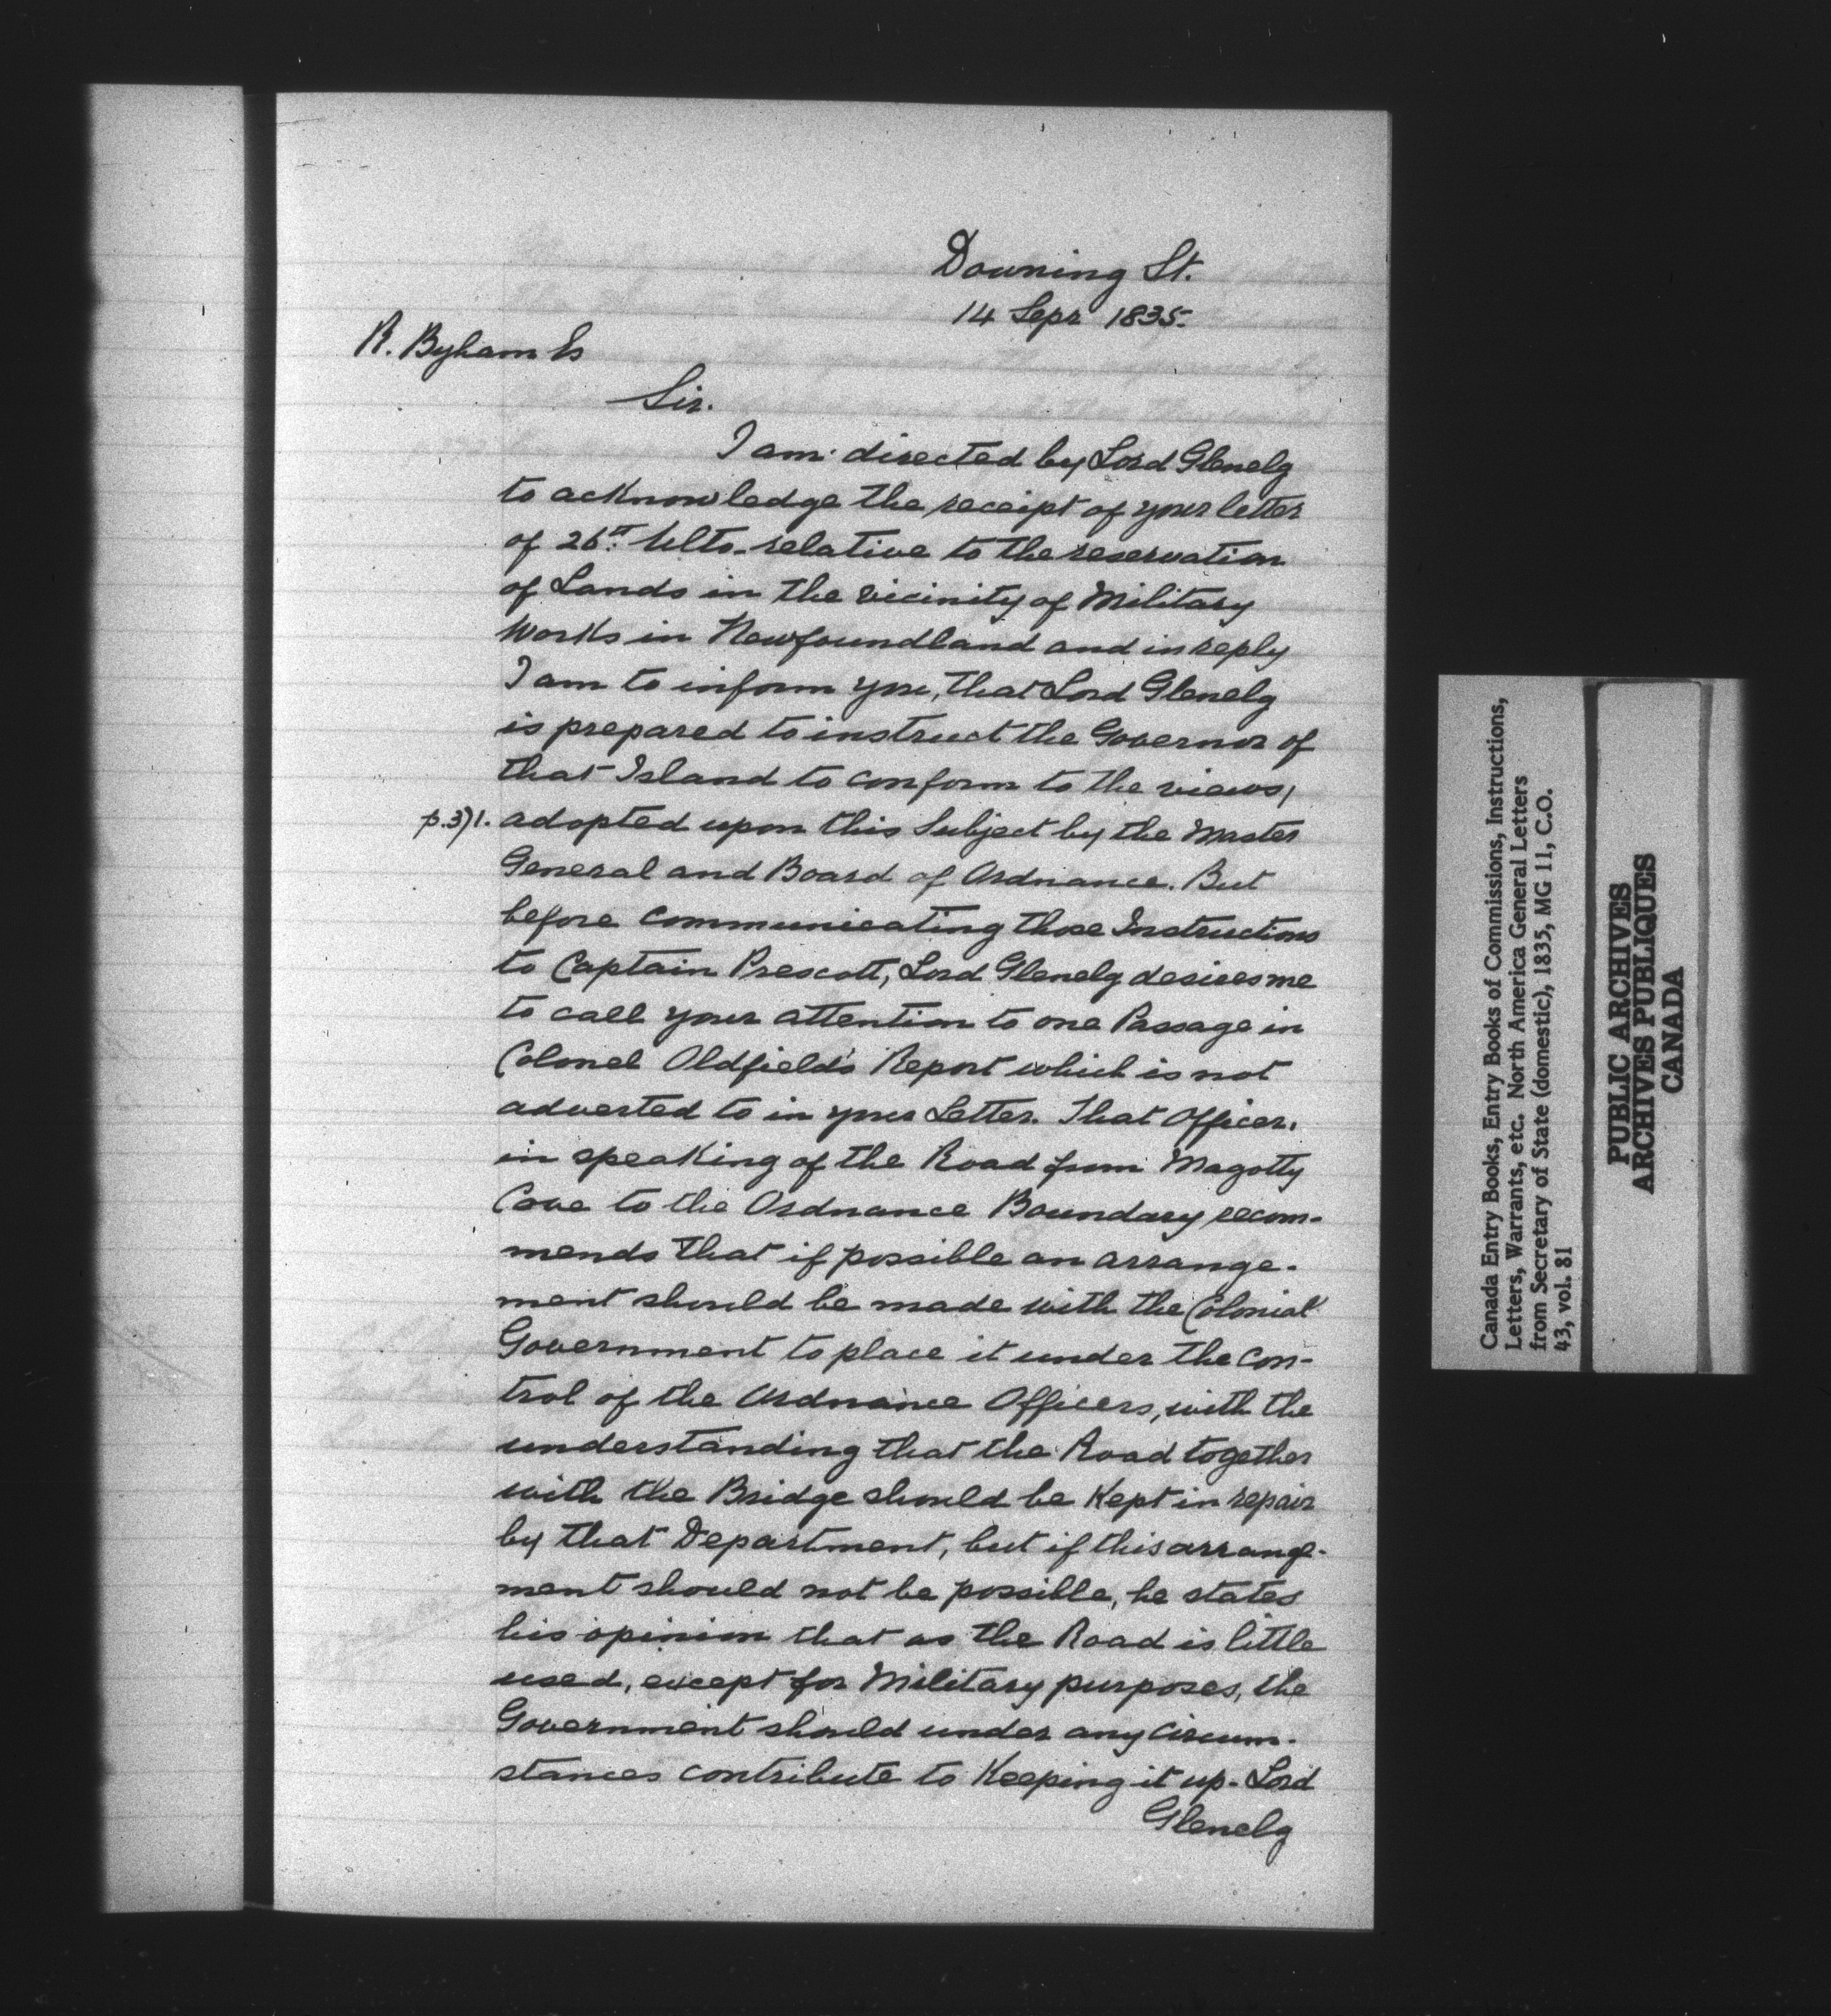 Downing St.
14 Sepr 1835.
R. Byham Es
Sir.
I am directed by Lord Glenelg
to acknowledge the receipt of your letter
of 26th Ulto. relative to the reservation
of Lands in the vicinity of Military
Works in Newfoundland and in reply
I am to inform you, that Lord Glenelg
is prepared to instruct the Governor of
that Island to conform to the views,
p.371. adopted upon this Subject by the Master
General and Board of Ordnance. But
before communicating those Instructions
to Captain Prescott, Lord Glenelg desires me
to call your attention to one Passage in
Colonel Oldfield's Report which is not
adverted to in your Letter. That Officer,
in speaking of the Road from Magotty
Cove to the Ordnance Boundary recom-
mends that if possible an arrange-
ment should be made with the Colonial
Government to place it under the Con-
trol of the Ordnance Officers, with the
understanding that the Road together
with the Bridge should be Kept in repair
by that Department, but if this arrange-
ment should not be possible, he states
his opinion that as the Road is little
used, except for Military purposes, the
Government should under any Circum-
stances contribute to Keeping it up. Lord
Glenelg
Canada Entry Books, Entry Books of Commissions, Instructions,
Letters, Warrants, etc. North America General Letters
from Secretary of State (domestic), 1835, MG 11, C.O.
43, vol. 81
PUBLIC ARCHIVES
ARCHIVES PUBLIQUES
CANADA